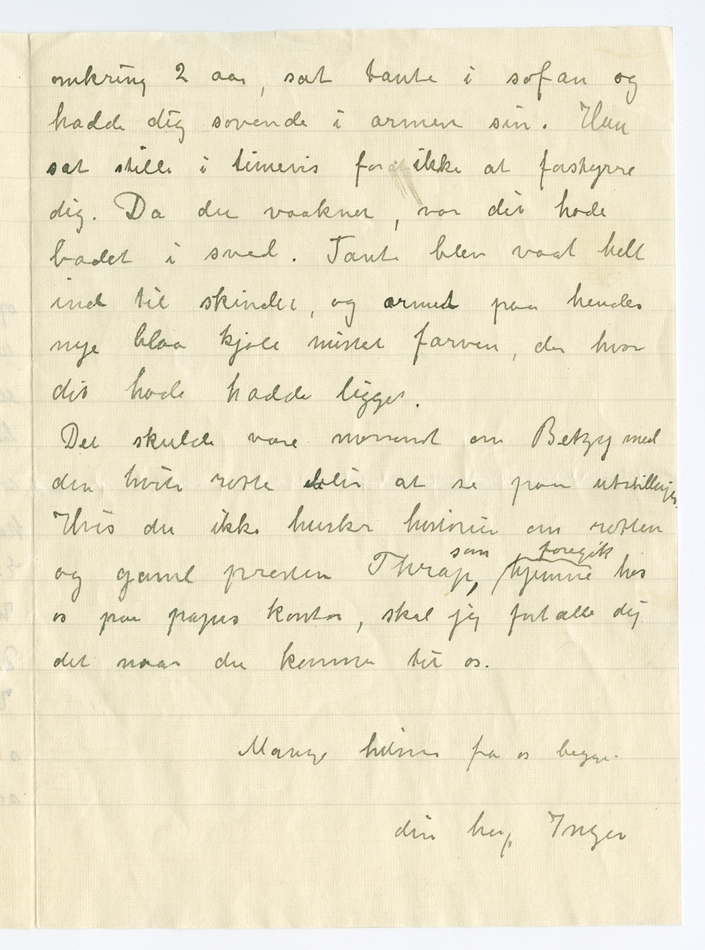 omkring 2 aar, sat tante i sofan og
hadde dig sovende i armen sin. Hun
sat stille i timevis for ikke at forstyrre
dig. Da du vaaknet, var dit hode
badet i sved. Tante blev vaat helt
ind til skindet, og armen paa hendes
nye blaa kjole mistet farven, der hvor
dit hode hadde ligget.
Det skulde være morsomt om Betzy med
den hvite rotte blir at se paa utstillingen.
Hvis du ikke husker historien om rotten
og gamle presten Thrap, som foregik hjemme hos
os paa papas kontor, skal jeg fortælle dig
det naar du kommer til os.
Mange hilsner fra os begge.
din heng. Inger